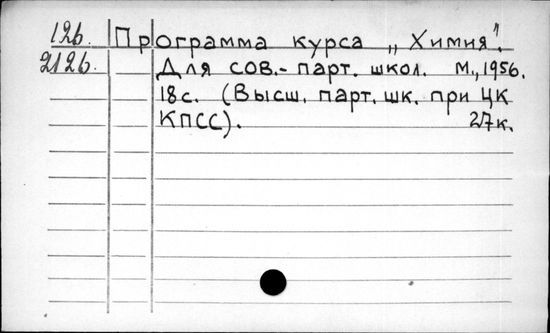 126. Программа курса „Химия".
2126. Для сов.-парт. школ. М., 1956.
18с. (Высш. парт. шк. при ЦК
КПСС). 27к.